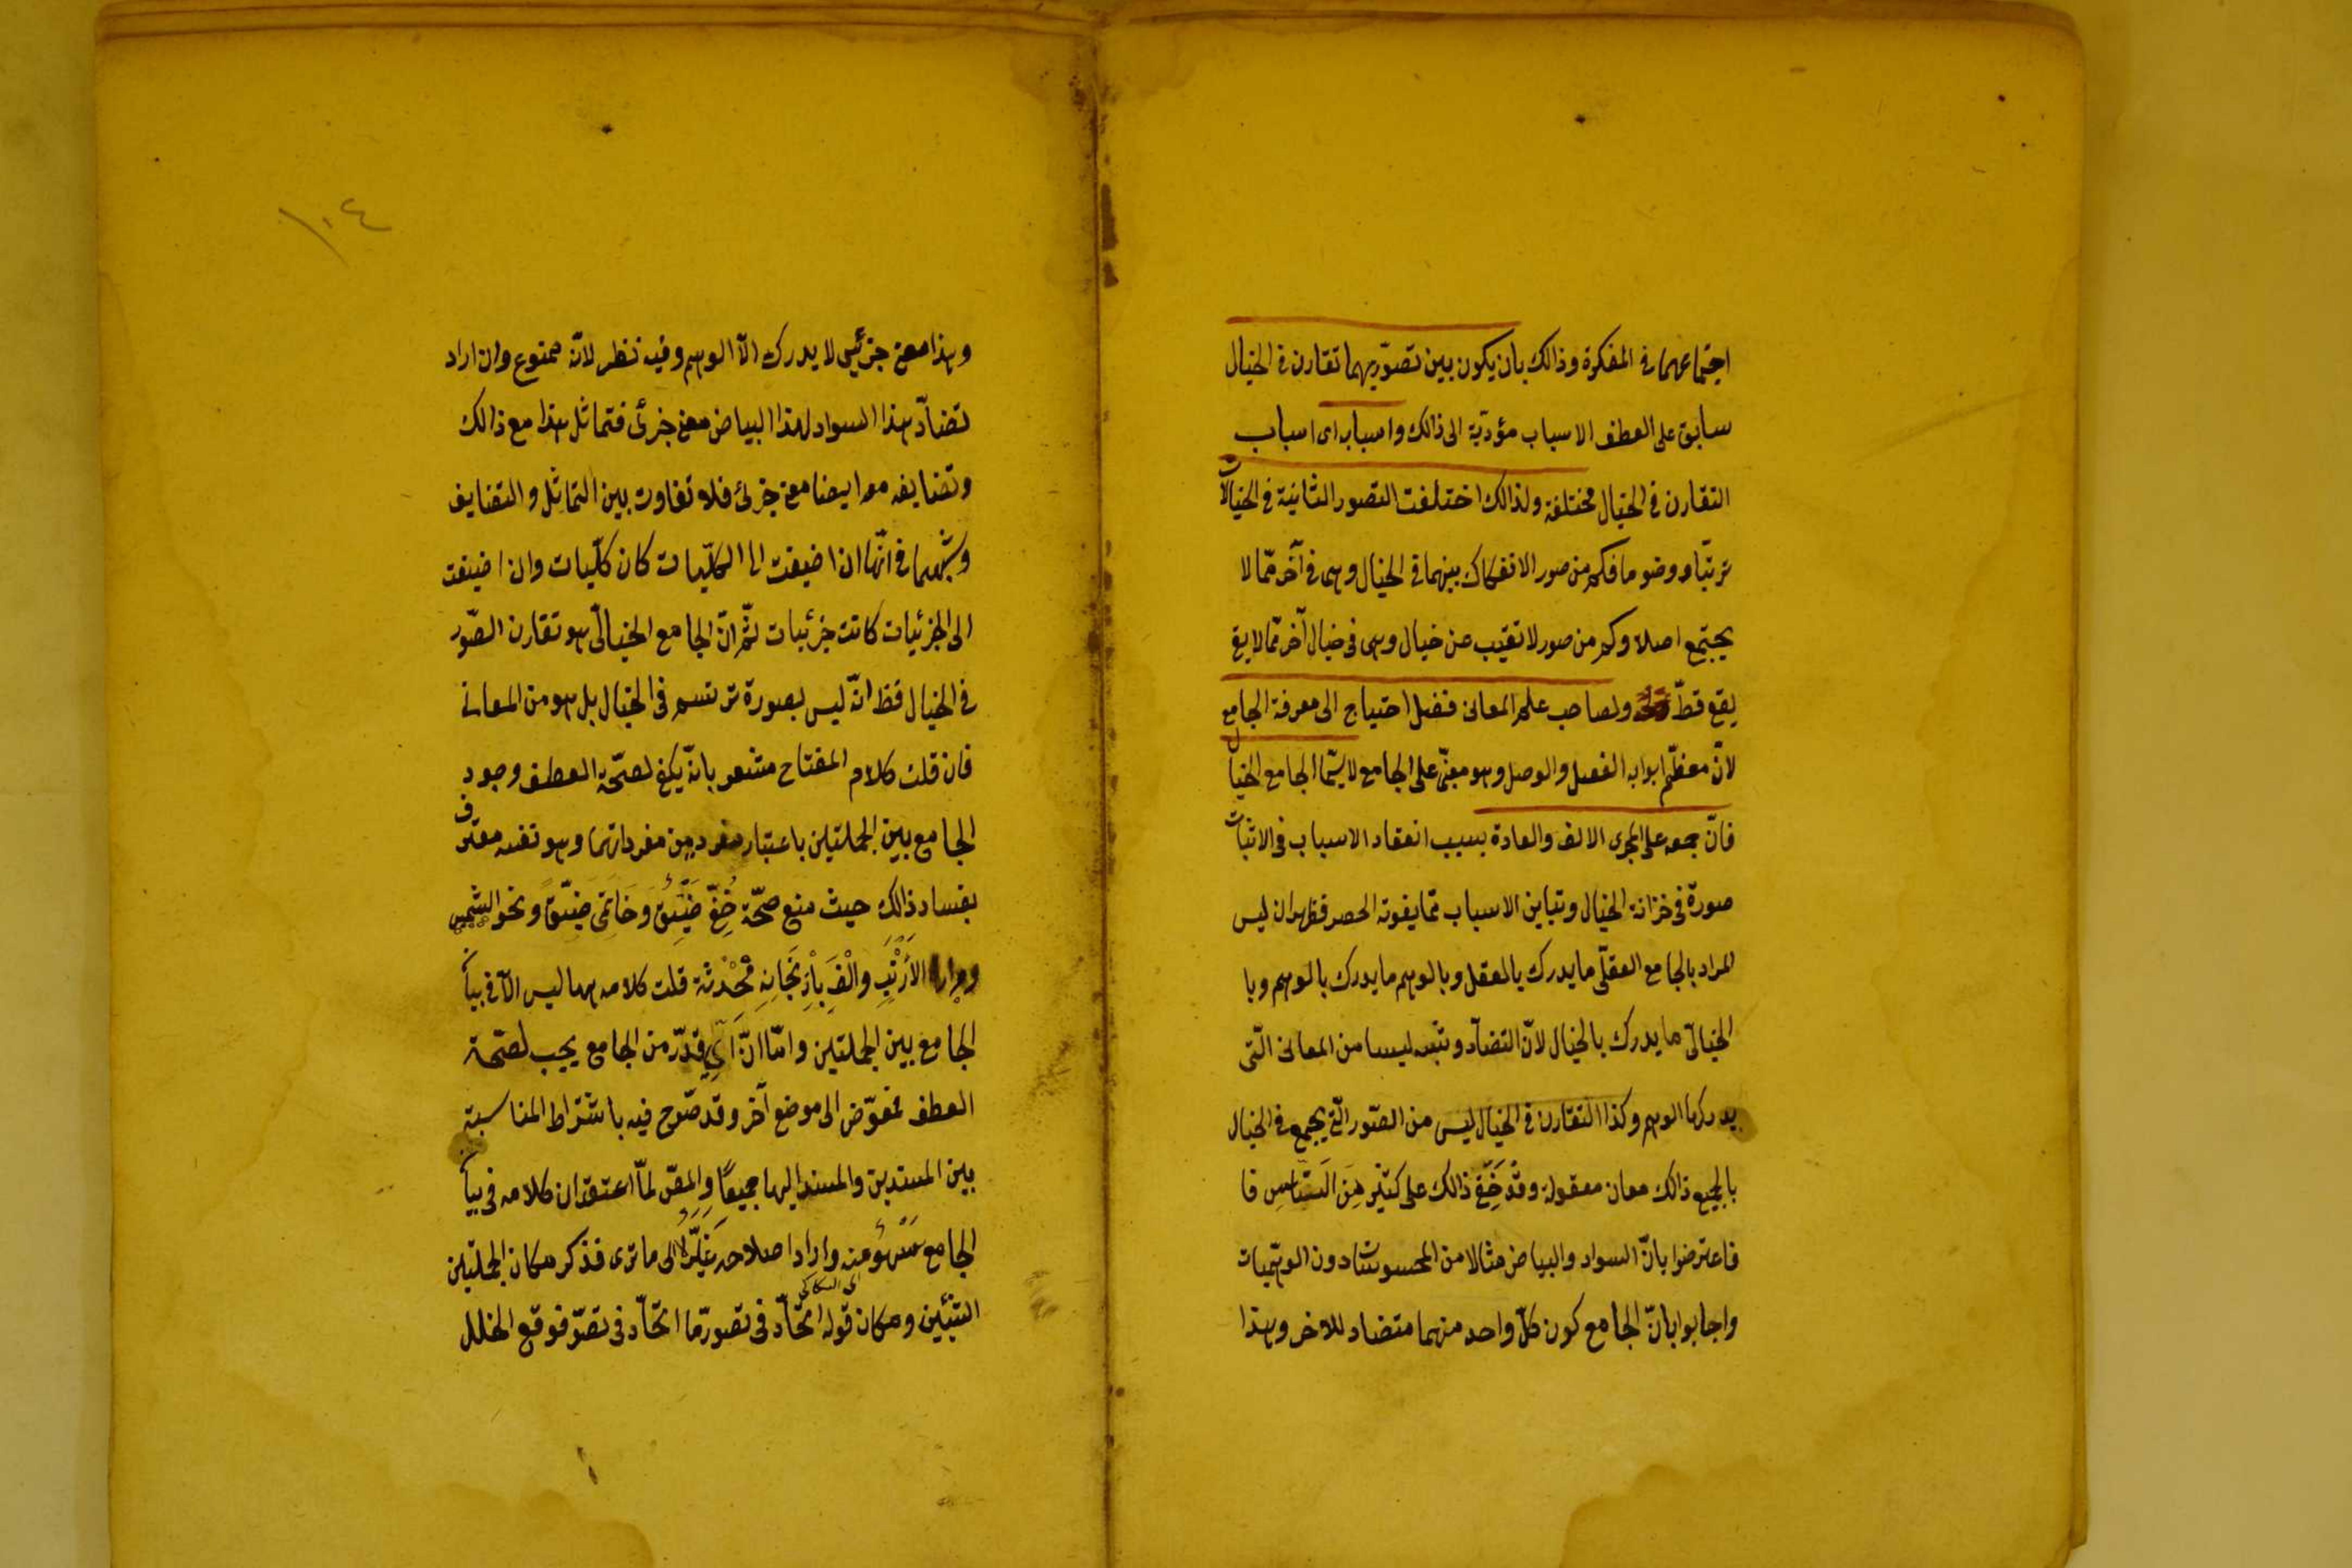 اجتماعهما فى المفكرة وذالك بان يكون بين تصوّريهما تقارن فى الخيال
سابق على العطف الاسباب مؤدّية الى ذالك واسبابه اى اسباب
التقارن فى الخيال مختلفة ولذالك اختلفت التصور الثانية فى الخيالات
ترتبا ووضوحا فكم من صور لا انفكاك بينهما فى الخيال وهى فى آخر ممّا لا
يجتمع اصلا وكم من صور لا تغيب عن خيال وهى فى خيال آخر ممّا لا يقع
يقع قطّ ولصاحب علم المعانى فضل احتياج الى معرفة الجامع
لانّ معظّم ابوابه الفصل والوصل وهو مبنىّ على الجامع لا سيّما الجامع الخيال
فانّ جمعه على مجرى الالف والعادة بسبب انعقاد الاسباب فى الاثبات
صورة فى خزانة الخيال وتباين الاسباب ممّا يفوته الحصر فظهر ان ليس
المراد بالجامع العقلّى ما يدرك بالعقل وبالوهم ما يدرك بالوهم وبا
الخيالىّ ما يدرك بالخيال لانّ التضآد وشبه ليسا من المعانى الّتى
يدركها الوهم وكذا التقارن فى الخيال ليس من الصّور الّتى يجمع فى الخيال
بالجميع ذالك معان معقولة وقد خَفِىَ ذالك على كثير مِنَ النَّاسِ فا
فاعترضوا بانّ السواد والبياض مثالا من المحسوسات دون الوهميّات
واجابوا بانّ الجامع كون كلّ واحد منهما متضاد للاخر وهذا
وهذا معنى جزئىّ لا يدرك الّا الوهم وفيه نظر لانّه ممنوع وان اراد
تضآدّ هذا السواد لهذا البياض معنى جزئى فتماثل هذا مع ذالك
وتضايفه معه ايضا معنى جزئى فلا تفاوت بين التماثل والتضايف
وشبههما فى انّها ان اضيفت الى الكلّيات كان كلّيات وان اضيفت
الى الجزئيات كانت جزئيات ثمّ انّ الجامع الخيالّى هو تقارن الصّور
فى الخيال فظ انّه ليس بصورة ترتسم فى الخيال بل هو من المعانى
فان قلت كلام المفتاح مشعر بانّه يكفى لصحّة العطف وجود
الجامع بين الجملتين باعتبار مفرد من مفرداتهما وهو نفسه معترف
بفساد ذالك حيث منع صحّة خُفِّى ضَيِّقٌ وَخَاتَمِى ضَيّقٌ ونحو الشمس
ومرارة الاَرْنَبِ والْفَ بَاْذِنْجَانِهِ مُحْدثة قلت كلامه ههنا ليس الّا فى بيان
الجامع بين الجملتين وامّا انّ اَىَّ قدرٍ من الجامع يجب لصّحة
العطف مفوّض الى موضع آخر وقد صرّح فيه باشتراط المناسبة
بين المسندين والمسند اليهما جميعًا والمص لمّا اعتقد ان كلامه فى بيان
الجامع سَهْوٌ منه واراد اصلاحه غيّره الى ما ترى فذكر مكان الجملتين
الشيئين ومكان قوله اتحّاد فى تصورّ ما اتحّاد فى تصوّر فوقع الخلل
اى السكاكى
١٠٤